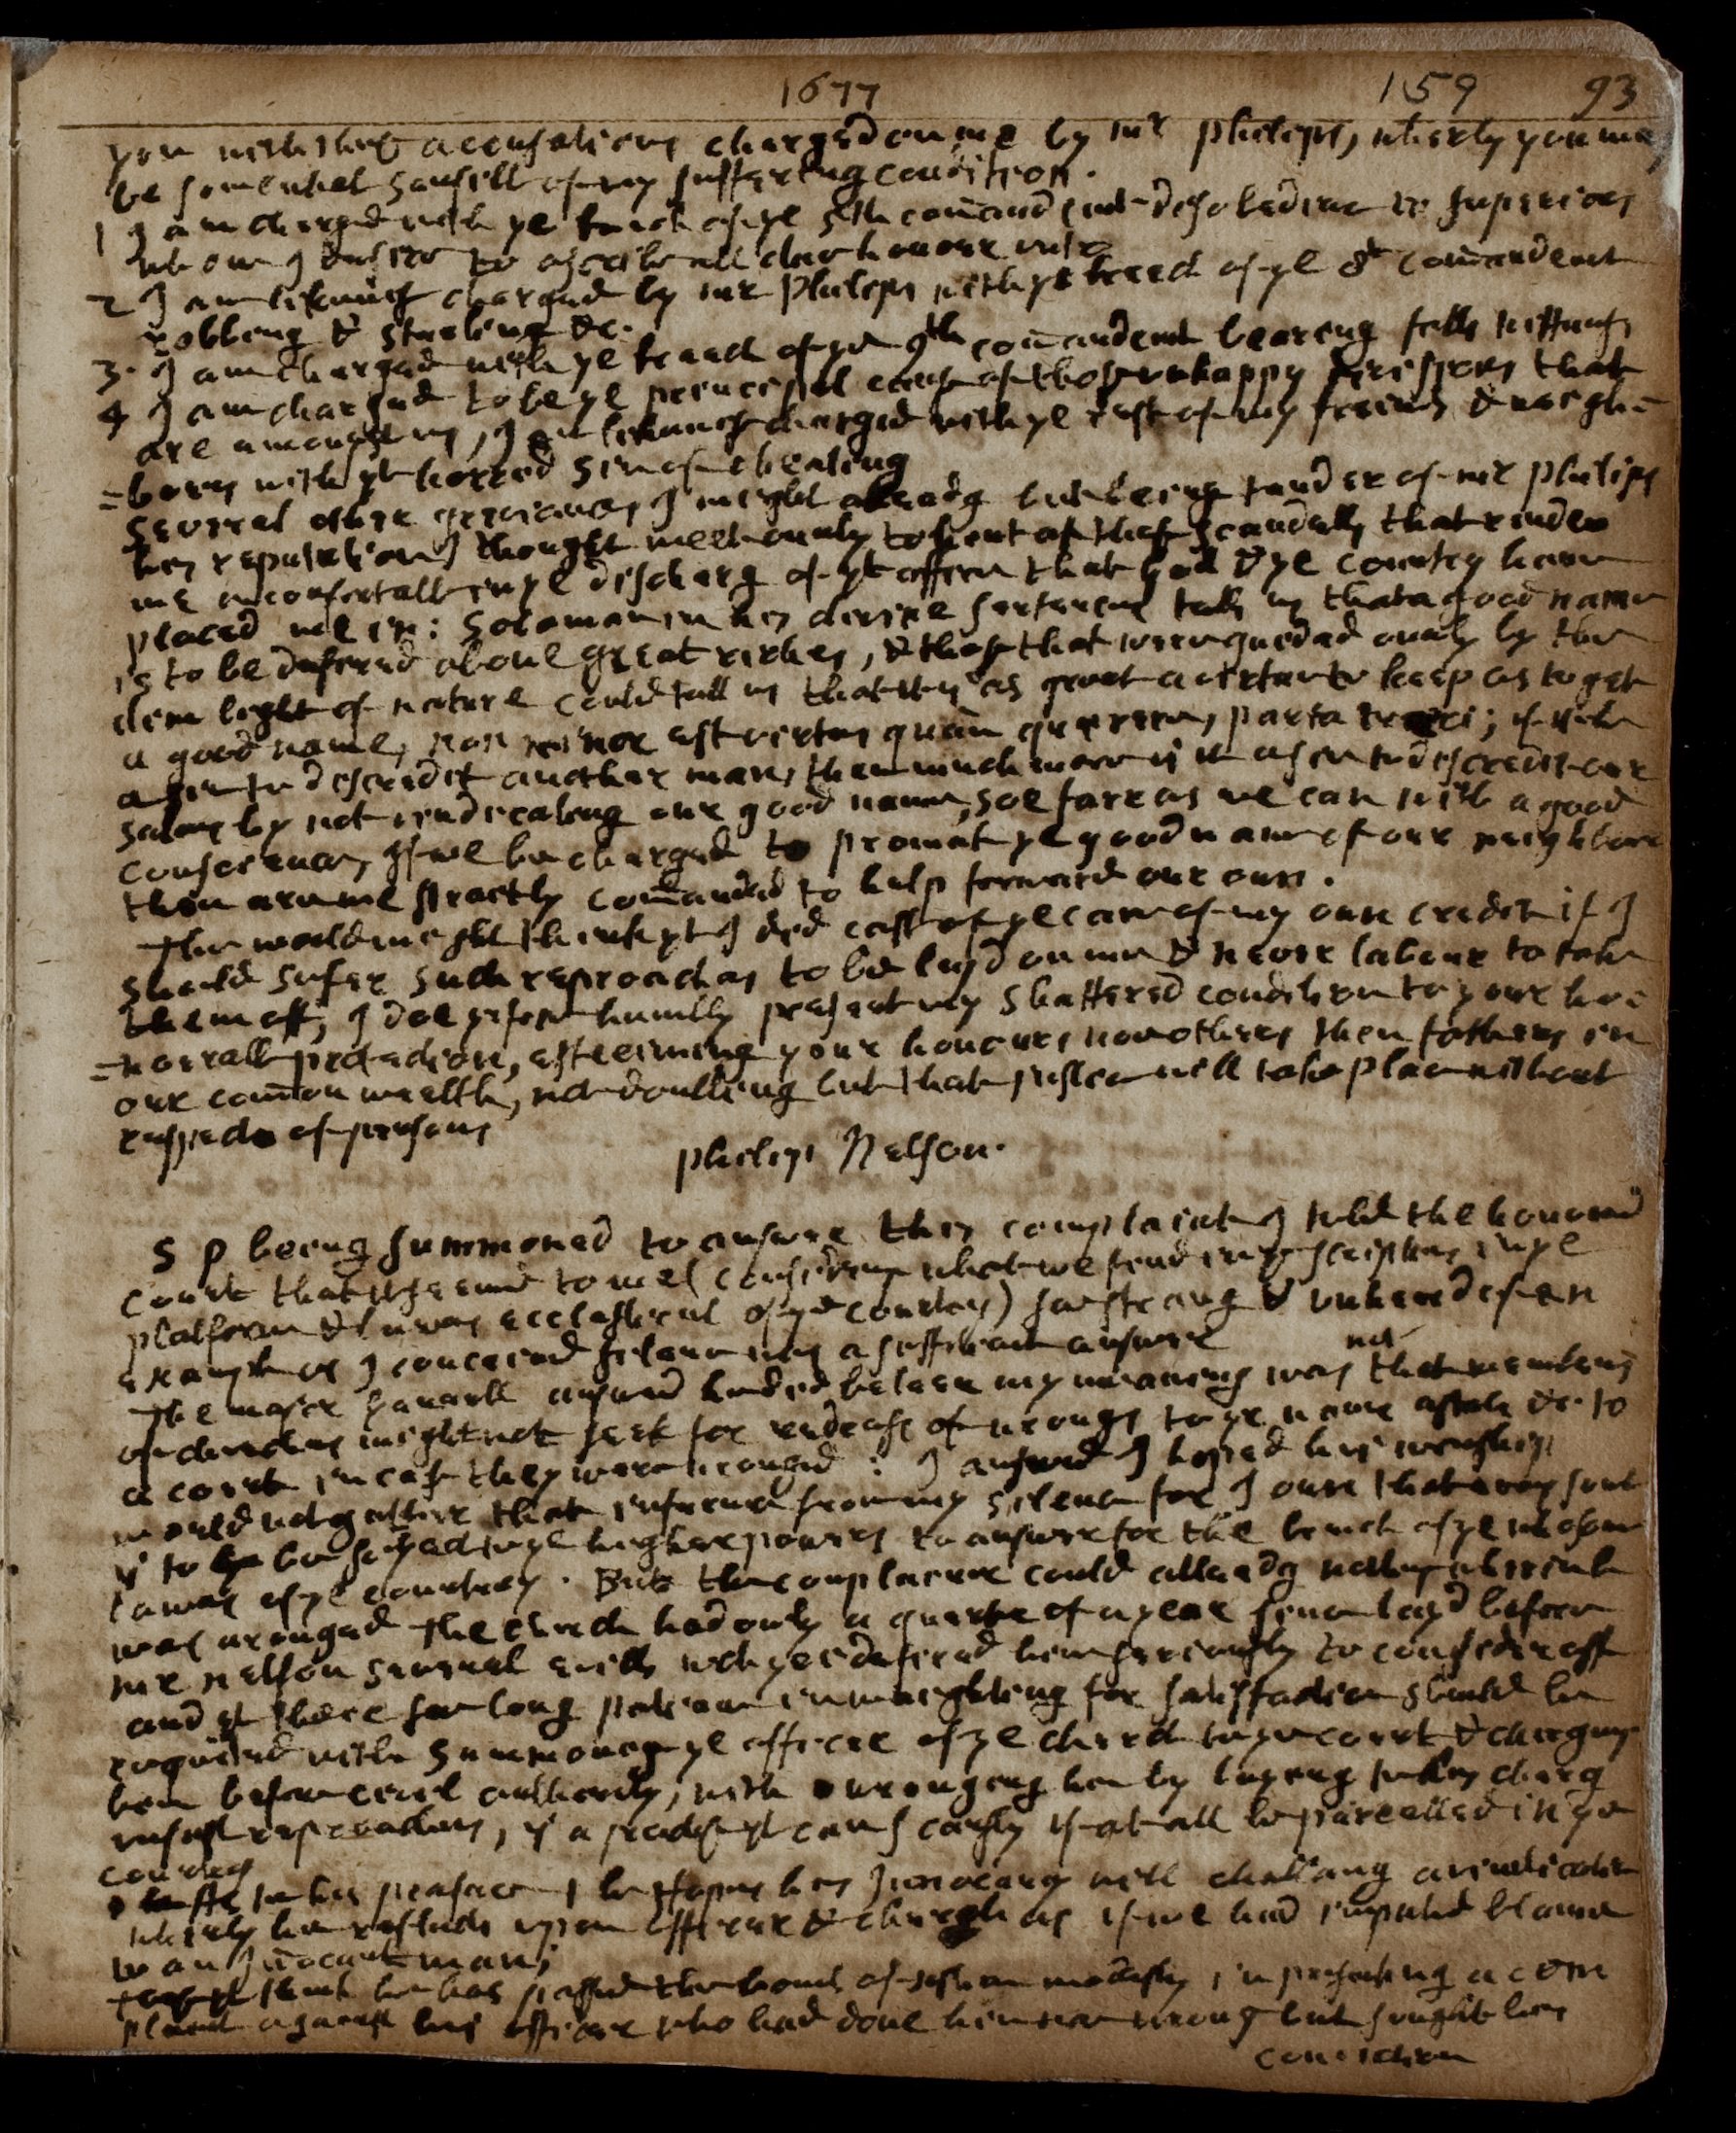 1677 159 93
you with thos accusations charged on me by mr philips, wherby you may
be somewhat sensill of my suffering condition.
1 I am charged with ye breach of ye 5th comandment disobedience to superiors
whom I desire to ascribe all due honour unto
2 I am likewise charged by mr philips with ye breech of ye 8t comandement
robbing & stealing &c.
3. I am charged with ye breach of ye 9th comandement bearing falls wittness
4 I am charged to be ye principal caus of thos unhappy divissions that
are amongst us, I am likewise charged with ye rest of my friends & neigh=
=bours with yt horred sin of cheating
several other grievances I might alleadg but being tender of mr philips
his reputation I thought meet only to hint at thes scandalls that render
me uncomfortable in ye discharg of yt office that god & ye country have
placed me in: Solomon in his divine sentence tells us that a good name
is to be desired above great riches, & thos that were guided only by the
dim light of nature could tell us that it is as great a vertue to keep as to get
a good name, non minor est virtus quam quaerere, parta tueri; if it be
a sin to discredit another man, then much more is it a sin to discredit our
selves by not vindicating our good name, soe farr as we can with a good
conscience, If we be charged to promot ye good name of our neighbour
then are we strictly comanded to help forward our own.
The world might think yt I did cast of ye care of my own credit if I
should sufer such reproaches to be layd on me & never labour to take
them off, I doe humbly present my shattered condition to your hon=
=norrall protection, esteeming your honours no others then fathers in
our comon wealth, not doubting but that justice will take place without
respect of persons
philip Nelson.
S P being summoned to answere this complaint I told the honored
Court that it seemd to me (considering what we find in scripture, in ye
platforme & lawes ecclesiasticall of ye country) so strang & unheard of an
example as I conceived silence was a sufficient answere
not
The major answerd he did beleeve my meaning was that members
of churches might not seek for redress of wrongs to ye name estate &c. to
a court in case they were wronged: I answerd I hoped his worship
would not gather that inference from my silence for I own that every soul
is to be subject to ye higher powers to answere for the breach of ye wholsom
lawes of ye country. But the complainer could alleadg nothing wherein he
was wronged The church had only a quarter of a year since layd before
mr nelson several evills wch yei desired him seriously to consider off
and yt there so long patience in waighting for satisfaction should be
requited with summoning ye officer of ye church to ye court & charging
him before civil authority, with wronging him by laying to his charg
unjust reproaches, is a president can scarsly if at all be parcelled in ye
country
In his preface he hopes his Innocency will challang a vindication
wherby he reflects upon officer & church as if we had imputed blame
to an Inocent man;
think he has passed the bounds of modesty in presenting a com
plaint against his officer who had done him no wrong but sought his
conviction